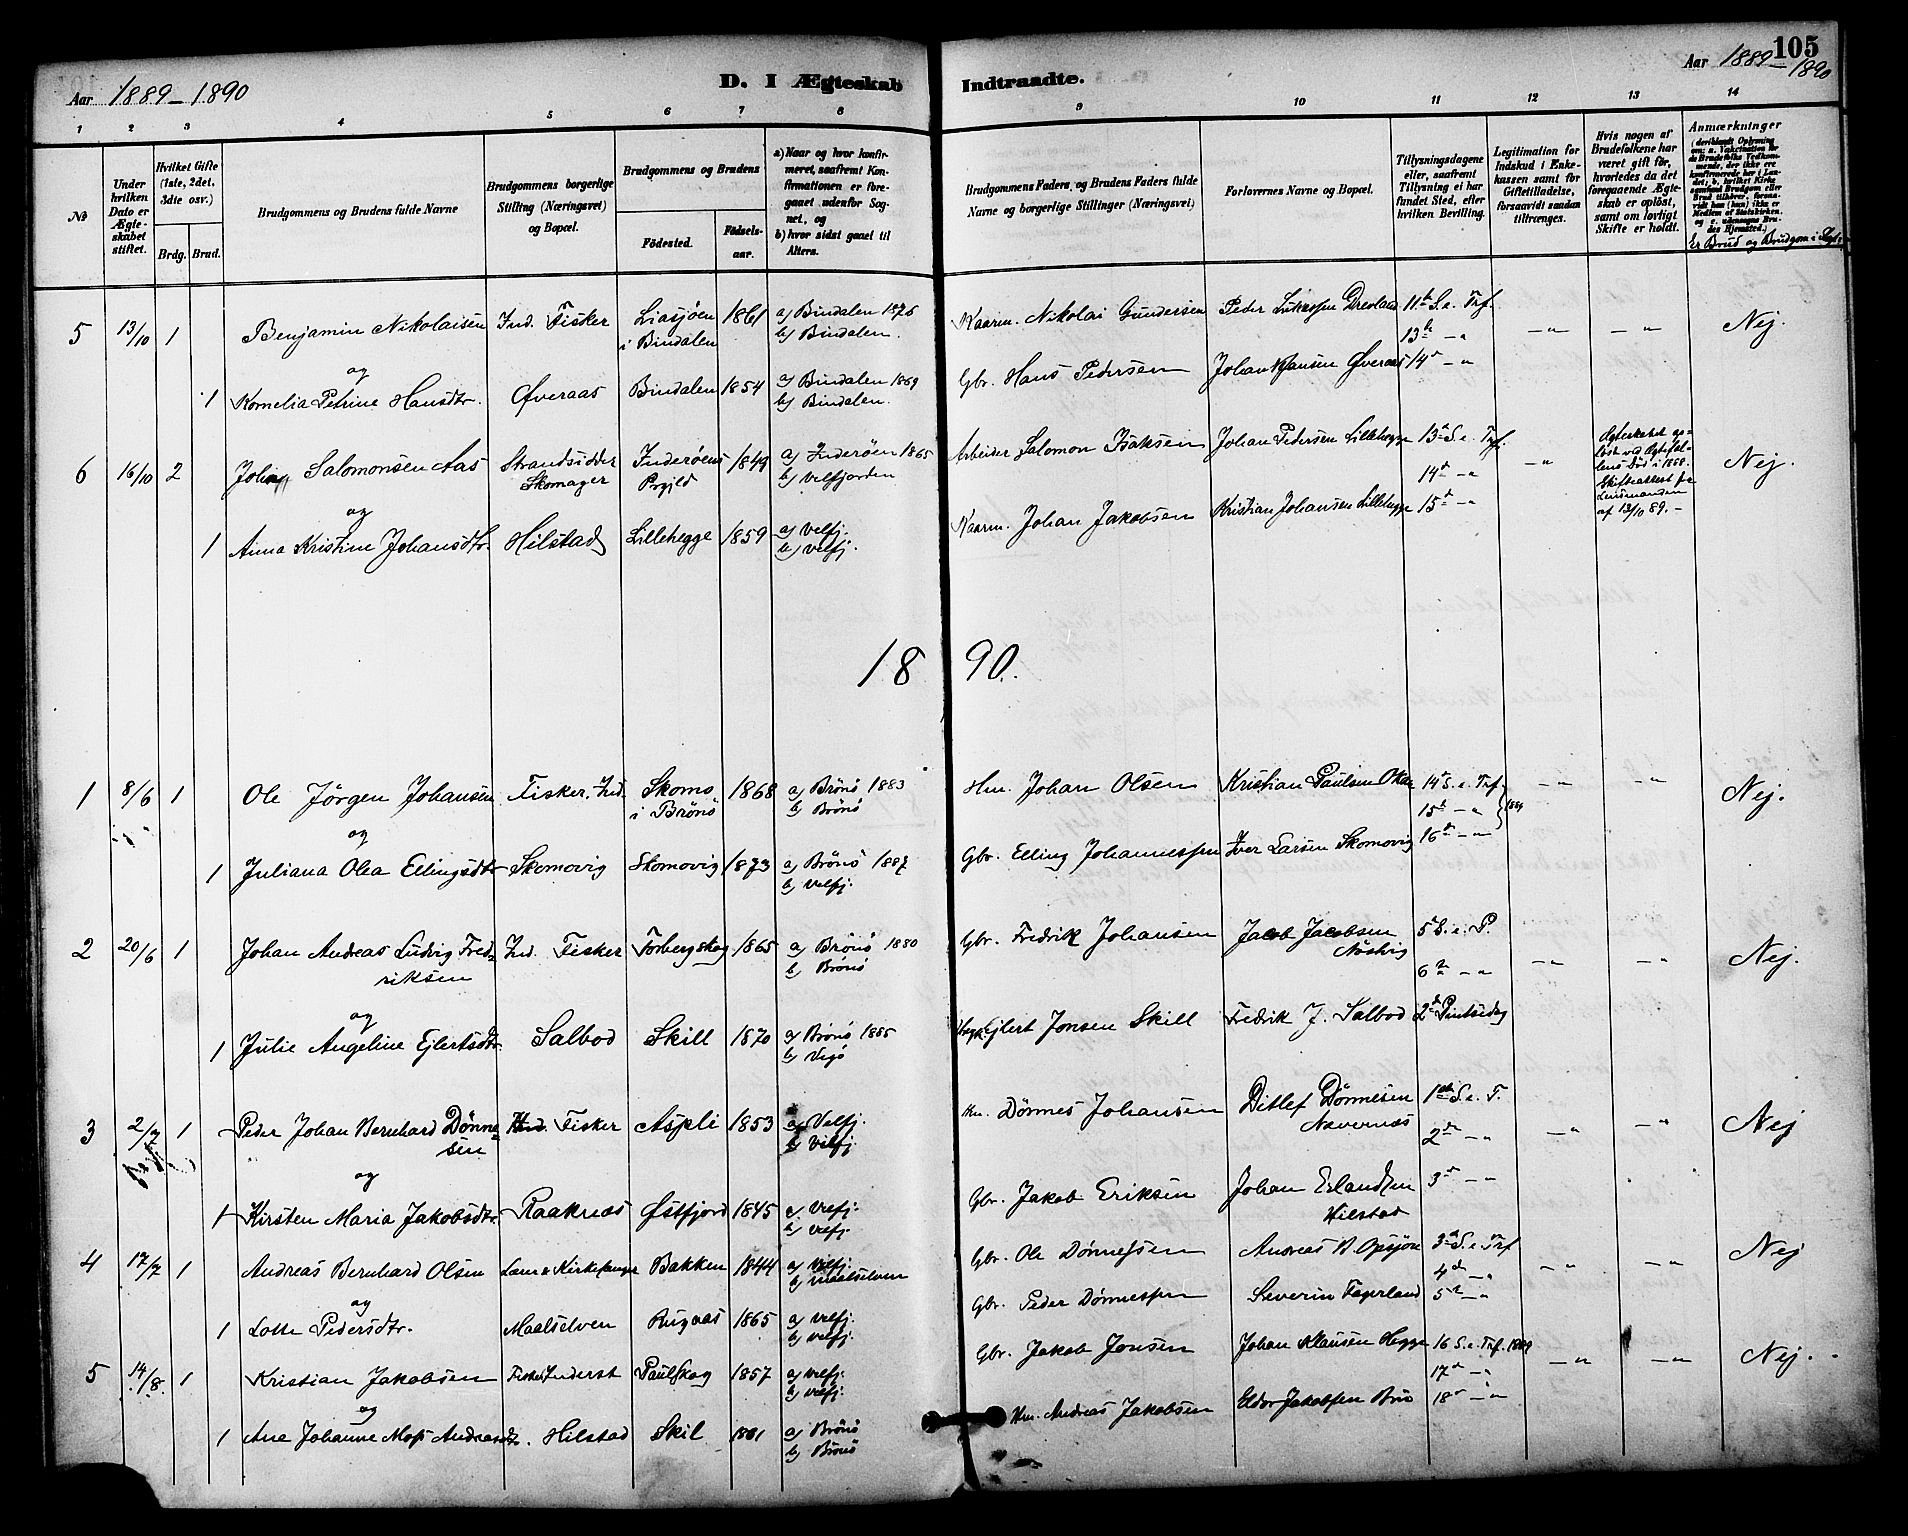 105
Aar 1889-1890
D. I Ægteskab Indtraadte.
Aar 1889-1890
1 2 3 4 5 6 7 8 9 10 11 12 13 14
No
Under hvilken Dato er Ægteskabet stiftet.
Hvilket Gifte (1ste, 2det, 3die osv.)
Brdg. Brud.
Brudgommens og Brudens fulde Navne
Brudgommens borgerlige Stilling (Næringsvei) og Bopæl.
Brudgommens og Brudens
Födested.
Födselsaar.
a) Naar og hvor konfirmeret, saafremt Konfirmationen er foregaaet udenfor Sognet, og
b) hvor sidst gaaet til Alters.
Brudgommens Faders, og Brudens Faders fulde Navne og borgerlige Stillinger (Næringsvei)
Forlovernes Navne og Bopæl.
Tillysningsdagene eller, saafremt Tillysning ei har fundet Sted, efter hvilken Bevilling.
Legitimation for Indskud i Enkekassen samt for Giftetilladelse, forsaavidt saadan tiltrænges.
Hvis nogen af Brudefolkene har været gift för, hvorledes da det foregaaende Ægteskab er oplöst, samt om lovligt Skifte er holdt.
Anmærkninger
(deriblandt Oplysning om: a. Vakcination for de Brudefolks Vedkommende, der ikke ere konfirmerede her i Landet; b. hvilket Kirkesamfund Brudgom eller Brud tilhörer, forsaavidt han (hun) ikke er Medlem af Statskirken. og c. udensogns Brudes Hjemsted.)
Er Brud og Brudgom i Slægt?
5 13/10 1 Benjamin Nikolaisen Ind. Fisker Liasjøen i Bindalen 1861 a) Bindalen 1876 b) Bindalen. Kaarm. Nikolai Gundersen Peder Lukassen 11te S. e. Trf. 13de -"- -"- -"- Nej.
og
1 Kornelia Petrine Hansdtr. Øveraas Bindalen 1854 a) Bindalen 1869 b) Bindalen. Gbr. Hans Pedersen Johan Hansen Øveraas 14d -"-
6 16/10 2 Salomonsen Aas Strandsidder Skomager Inderøens Prgjld 1849 a) Inderøen 1865 b) Velfjorden Arbeider Salomon Isaksen Johan Pedersen Lillehegge 13de S. e. Trf. 14d -"- -"- Ægteskabet opløst ved Ægtefællens Død i 1888. Skifteattest fra Lensmanden af 13/10 89.- Nej.
og
1 Anna Kristine Johansdtr. Hilstad Lillehegge 1859 a) Velfj. b) Velfj. Kaarm. Johan Jakobsen Kristian Johansen Lillehegge 15d -"-
1890.
1 8/6 1 Ole Jørgen Johansen Fisker. Ind. Skomo i Brønø 1868 a) Brønø 1883 b) Brønø Hm. Johan Olsen Kristian Paulsen 14d S. e. Trf. 15d -"- 1889 -"- -"- Nej.
og
1 Juliana Olea Ellingsdtr Skomovig Skomovig 1873 a) Brønø 1887 b) Velfj. Gbr. Elling Johannessen Iver Larsen Skomovig 16d -"-
2 20/6 1 Johan Andreas Ludvig Fredriksen Ind. Fisker Torbergskog 1865 a) Brønø 1880 b) Brønø Gbr. Fredrik Johansen Jacob Jacobsen Nøstvig 5d S. e. P. 6d -"- -"- -"- Nej.
og
1 Julie Angeline Ejlertsdtr. Salbod Skill 1870 a) Brønø 1885 b) Vegø Ejlert Jonsen Skill Fredrik J. Salbod 2d Pintsedag
3 2/7 1 Peder Johan Bernhard Dønnesen Ind. Fisker Aspli 1853 a) Velfj. b) Velfj. Hm. Dønnes Johansen Ditlef Dønnesen Nævernæs 1ste S. e. T. 2d -"- -"- -"- Nej
og
1 Kirsten Maria Jakobsdtr. Raaknæs Østfjord 1845 a) Velfj. b) Velfj. Gbr. Jakob Eriksen Johan Erlandsen Hilstad 3d -"-
4 17/7 1 Andreas Bernhard Olsen Lærer & Kirkesanger Bakken 1844 a) Velfj. b) Maalselven Gbr. Ole Dønnessen Andreas B. Opsjøn 3d S. e. Trf 4d -"- -"- -"- Nej
og
1 Lotte Pedersdtr. Maalselven Rugaas 1865 a) Velfj. b) Velfj. Gbr. Peder Dønnessen Severin Fagerland 5d -"-
5 14/8. 1 Kristian Jakobsen Fisker Inderst Paulskog 1857 a) Velfj. b) Velfj. Gbr. Jakob Jonsen Johan Klausen Hegge 16 S. e. Trf. 1889 17d -"- -"- -"- Nej.
og
1 Ane Johanne Andreasdtr. Hilstad Skil 1861 a) Brønø b) Brønø Hm. Andreas Jakobsen Eldor Jakobsen 18d -"-